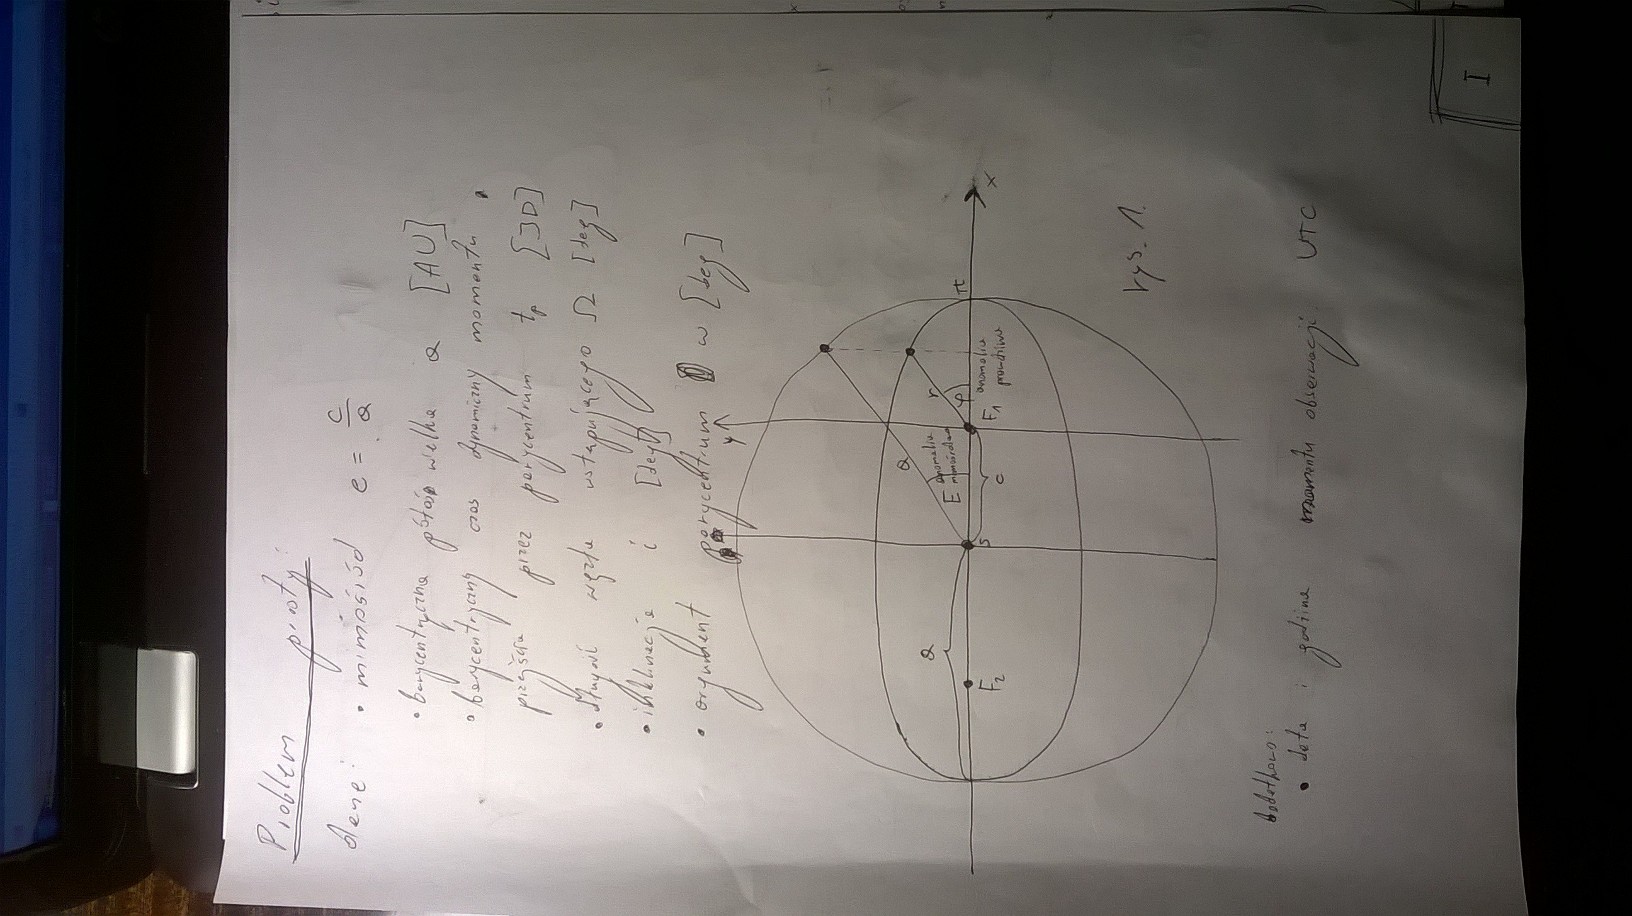 Problem prosty:
dane: • mimośród e = c/a
• barycentryczna półoś wielka a [AU]
• barycentryczny czas dynamiczny momentu
przejścia przez perycentrum tₚ [JD]
• długość węzła wstępującego Ω [deg]
• inklinacja i [deg]
• argument perycentrum ω [deg]
y
a
a
E anomalia
mimośrodowa
r
φ
π
F₂
S
c
F₁
anomalia
prawdziwa
x
rys. 1.
dodatkowo:
• data i godzina momentu obserwacji UTC
I